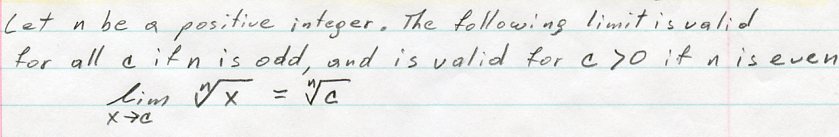 Let n be a positive integer. The following limit is valid
for all c if n is odd, and is valid for c > 0 if n is even
lim ⁿ√x = ⁿ√c
x→c